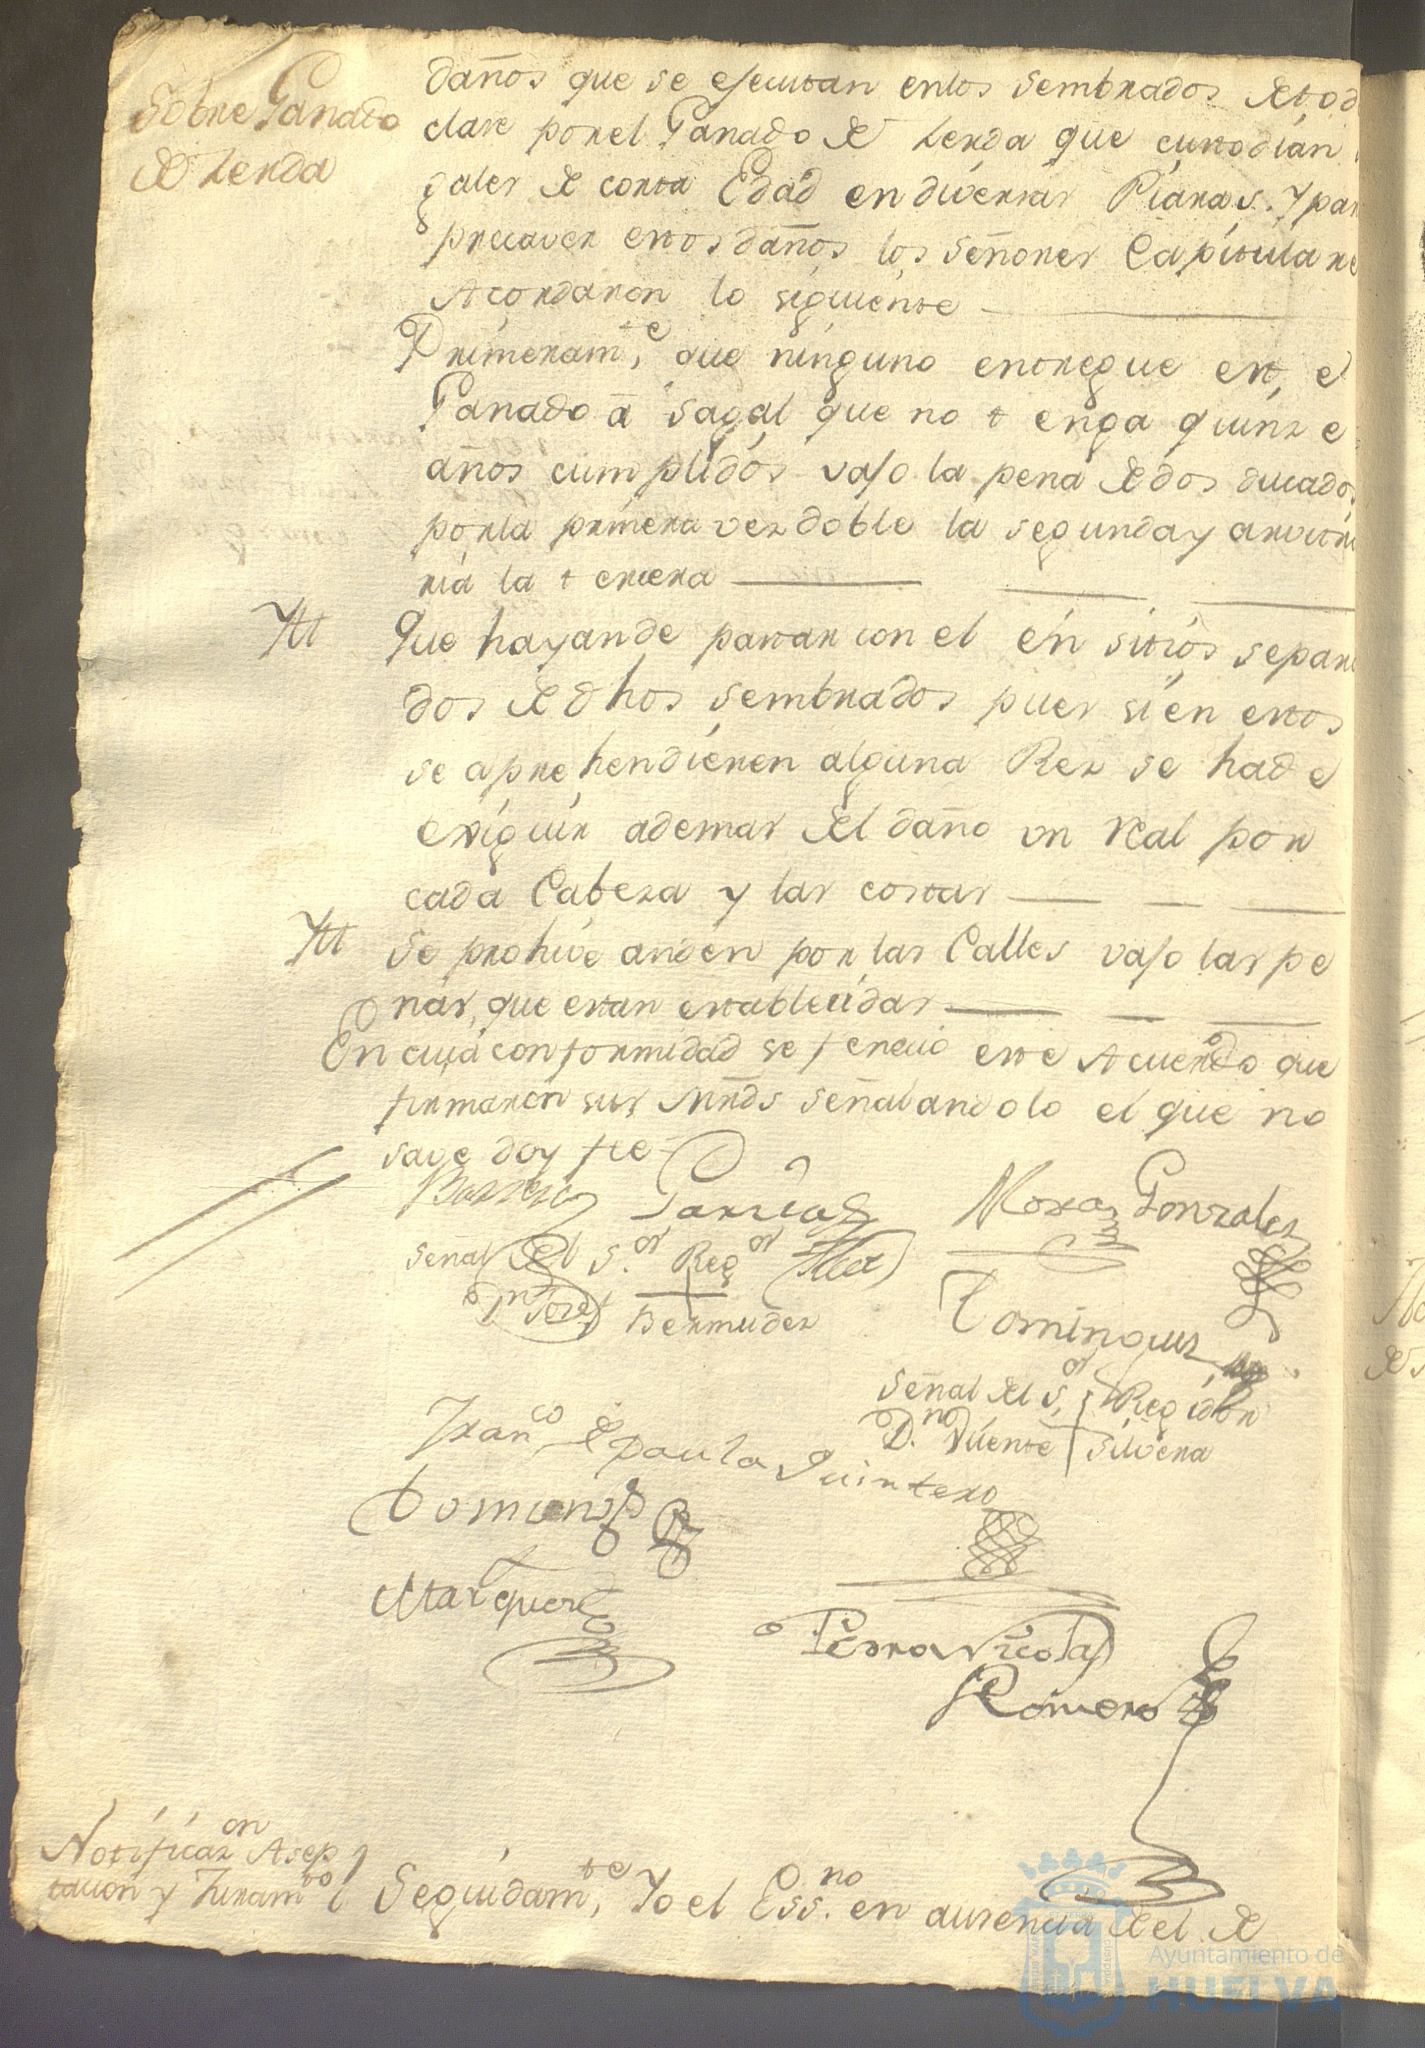 Sobre Ganado
de Zerda
daños que se ejecutan enlos sembrados de tod
clase por el Ganado de Zerda que custodían
gales de corta Edad en diversas Píaras. Y par
precaver estos daños los señores Capitulare
Acordaron lo siguiente
Primeramte, que ninguno entregue este
Ganado á sagal que no tenga quínze
años cumplidos vajo la pena de dos ducados
por la primera vez doble la segunda y arvitra
ria la tercera
Ytt Que hayan de pastar con el en sitios separa
dos de dhos sembrados pues si en estos
se aprehendieren alguna Rez se had e
exiguir ademas del daño un real por
cada Cabeza y las costas
Ytt Se prohive anden por las Calles vajo las pe
nas, que estan establecidas
En cuia conformidad se fenecio este Acuerdo que
firmaron sus Mrds señalandolo el que no
save doy fee
Borrero Garcia Mora Gonzales
Señal del S.or Reg.or
Dn Jose Bermudez
Dominguez
Señal del S.or Regidor
D.n Vicente Silvera
Franco de paula Quintero
Domingo
Marquez
Pedro Nicolas
Romero
Notificazon Asep
tacion y Juramto
Seguidamte, Yo el Essno. en ausencia del de
Ayuntamiento de
HUELVA